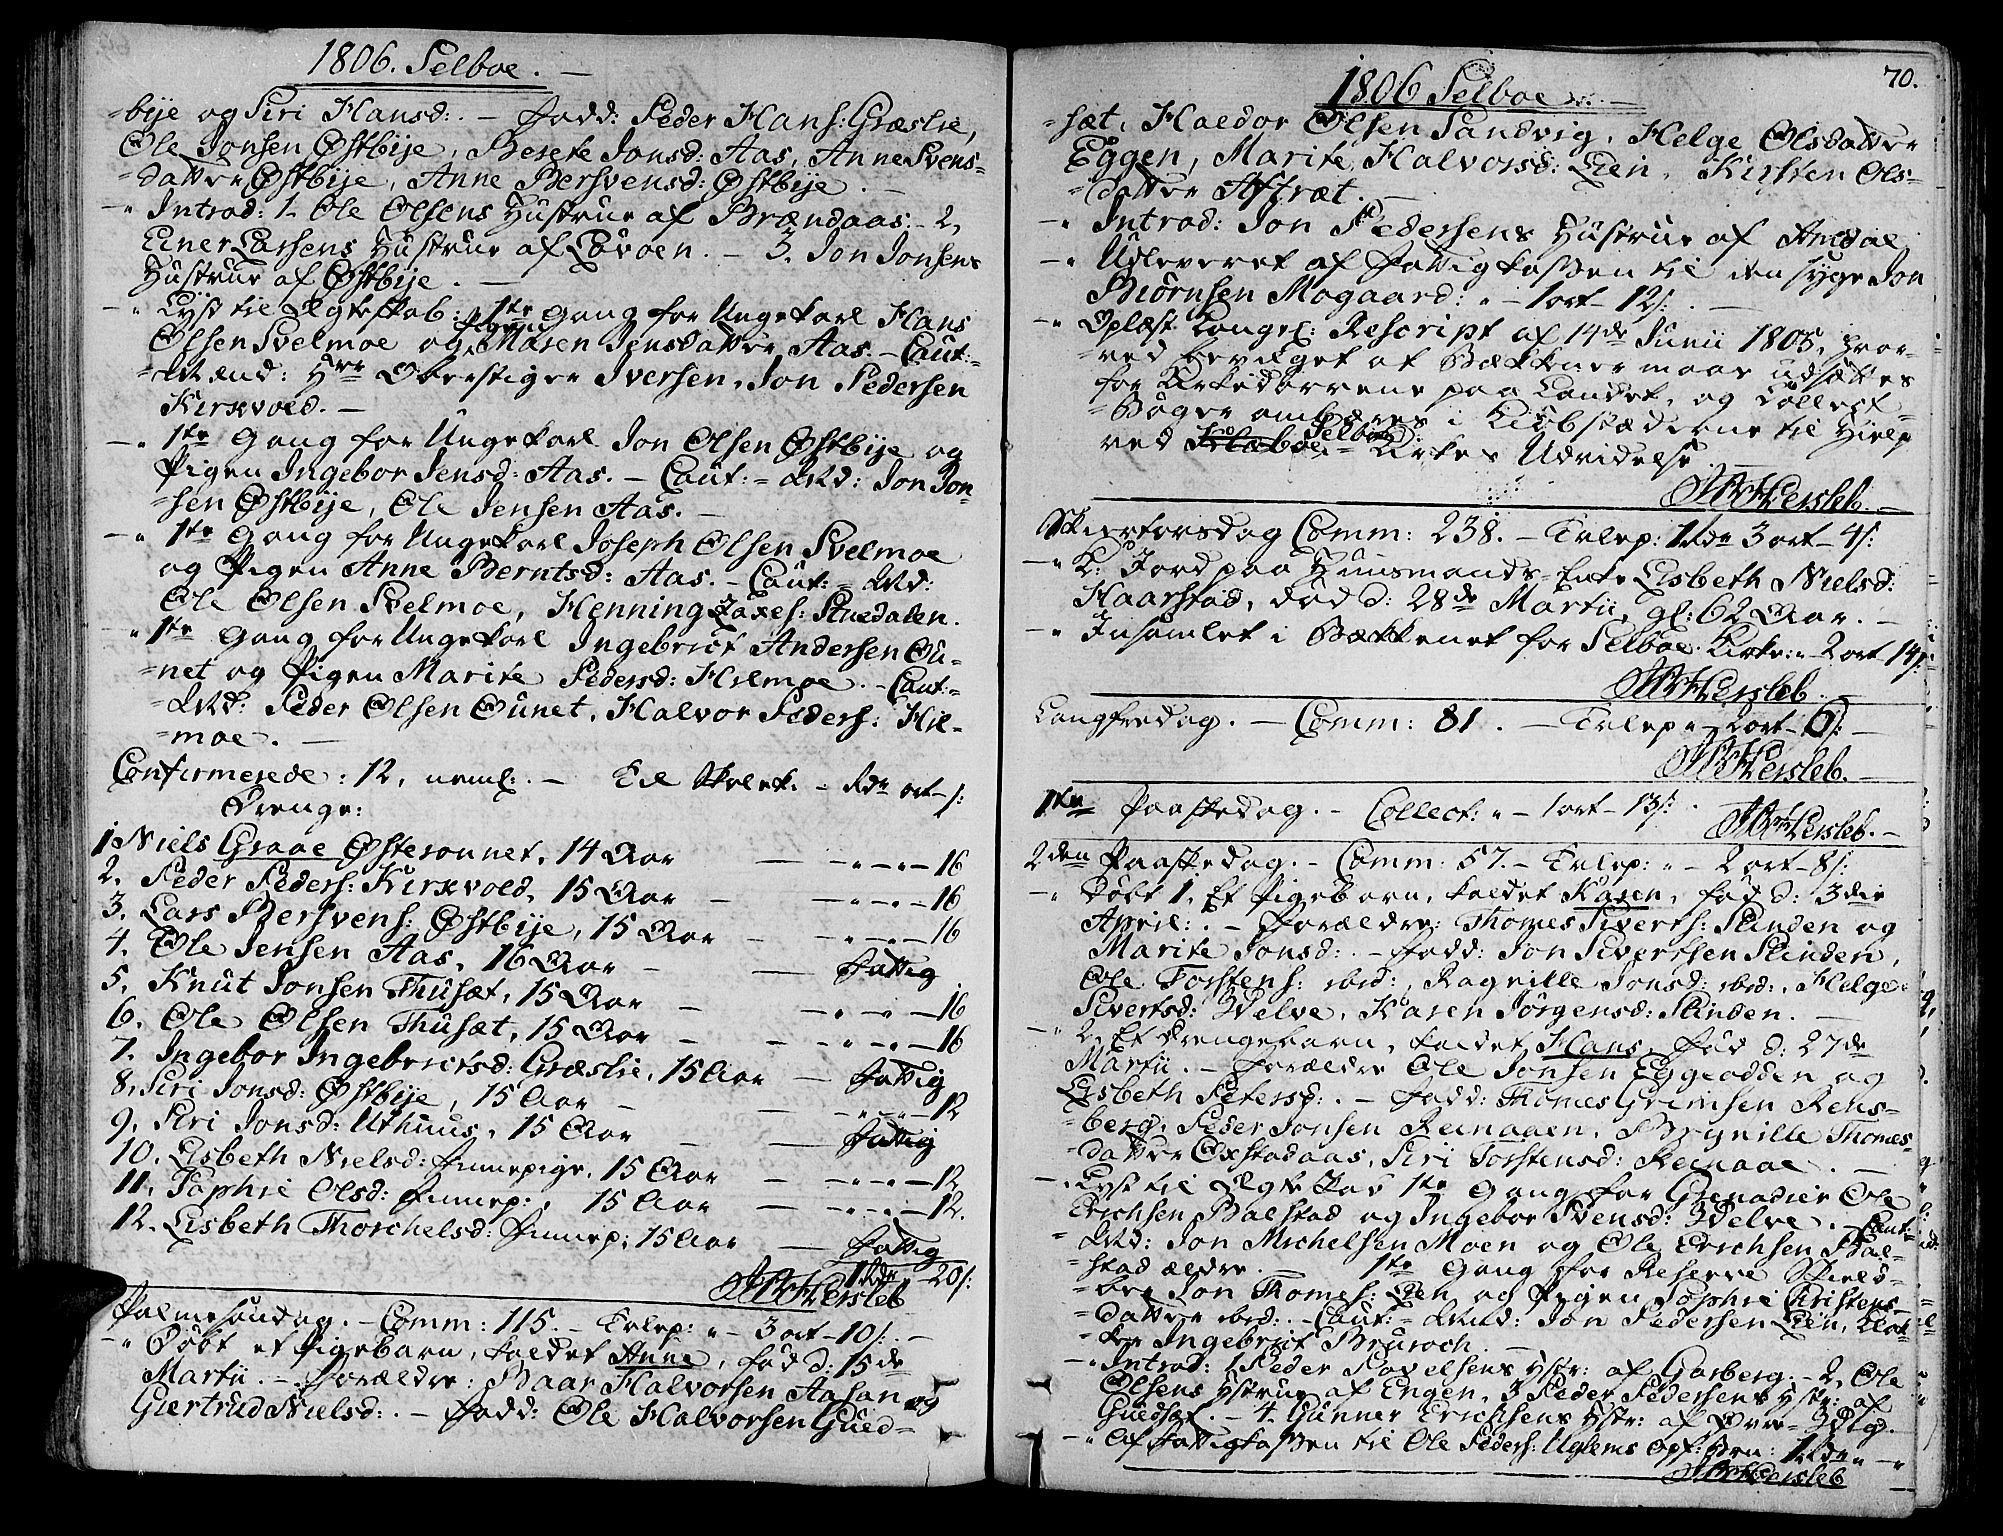 1806. Selboe. —
=bÿe og Siri Hansd: . — Fadd: Peder Hans: Græslie,
Ole Jonsen Østbÿe, Berete Jonsd: Aas, Anne Svens-
=datter Østbÿe, Anne Bersvensd: Østbÿe. —
—" Introd: 1. Ole Olsens Hustrue af Brændaas. - 2,
Einer Larsens Hustrue af Løvøen. — 3. Jon Jonsens
Hustrue af Østbÿe. —
—" Lyst til Ægteskab: 1te Gang for Ungekarl Hans
Olsen Svelmoe og Pigen Maren Jensdatter Aas. — Caut:=
=Mænd: Hrr Oberstiger Iversen, Jon Pedersen
Kirkvold. —
—" 1te Gang for Ungekarl Jon Olsen Østbÿe og
Pigen Ingebor Jensd: Aas. — Caut:=Md: Jon Jon-
=sen Østbÿe, Ole Jensen Aas. —
—" 1te Gang for Ungekarl Joseph Olsen Svelmoe
og Pigen Anne Berntsd: Aas. — Caut:=Md:
Ole Olsen Svelmoe, Henning Zaxes: Stuedalen.
—" 1te Gang for Ungekarl Ingebrict Andersen Ou-
=net og Pigen Marite Pedersd: Hilmoe. — Caut:=
=Md: Peder Olsen Ounet, Halvor Peders: Hil-
=moe. —
Confirmerede: 12, neml: . — Til Skolek: - Rdr ort - s:
Drenge:
1 Niels Graae Østerounet, 14 Aar — — " — " — 16
2. Peder Peders: Kirkvold, 15 Aar — — " — " — 16
3. Lars Bersvens: Østbÿe, 15 Aar — — " — " — 16
4. Ole Jensen Aas, 16 Aar — — Fattig
5. Knut Jonsen Thusæt, 15 Aar — — " — " — 16
6. Ole Olsen Thusæt, 15 Aar — — " — " — 16
7. Ingebor Ingebrictsd: Græslie, 15 Aar — Fattig
8. Siri Jonsd: Østbÿe, 15 Aar — — " — " — 12
9. Siri Jonsd: Uthuus, 15 Aar — — Fattig
10. Lisbeth Nielsd: Finnepige, 15 Aar — — " — " — 12
11. Sophie Olsd: Finnep:, 15 Aar — — " — " — 12.
12. Lisbeth Thorchelsd: Finnep: 15 Aar — Fattig
1 Rdr - 20 s:
Hersleb
Palmesøndag. — Comm: 115. — Tvlep: " — 3 ort — 10 s: . —
—" Døbt et Pigebarn, kaldet Anne, fød d: 15de
Martii. — Forældre: Baar Halvorsen Aasan og
Giertrud Nielsd: . — Fadd: Ole Halvorsen Gued=
1806 Selboe. —
70.
=sæt, Haldor Olsen Sandvig, Helge Olsdatter
Eggen, Marite Halvorsd: Lien, Kirsten Ols-
=datter Aftræt. —
—" Introd: Jon Pedersens Hustrue af Amdal
—" Udleveret af Fattigkassen til den syge Jon
Biørnsen Mogaard: " — 1 ort — 12 s: . —
—" Oplæst Cangel: Rescript af 14de Junii 1805, hvor-
=ved bevilget at Bækkener maae udsættes
for Kirkedørrene paa Landet, og Collect-
=Bøger ombæres i Kiøbstæderne til Hielp
ved Klæboe Selboe Kirkes Udvidelse.
Hersleb. —
Skiertorsdag Comm: 238. — Tvlep: 1 Rdr 3 ort — 4 s:
—" K. Jord paa Huusmands-Enke Lisbeth Nielsd:
Haarstad, død d: 28de Martii, gl: 62 Aar. —
—" Insamlet i Bækkenet for Selboe Kirke: " 2 ort 14 s:
Hersleb.
Langfredag. — Comm: 81. — Tvlep " — 2 ort — 6 s: —
Hersleb. —
1te Paaskedag. — Collect: " — 1 ort — 13 s: . Hersleb. —
2den Paaskedag. — Comm: 57. — Tvlep: " — 2 ort — 8 s:
—" Døbt 1, Et Pigebarn, kaldet Karen, fød d: 3die
April: . — Forældre: Thomes Siverts: Slinden og
Marite Jonsd: . — Fadd: Jon Sivertsen Slinden,
Ole Torstens: ibid:, Ragnille Jonsd: ibid:, Helge
Sivertsd: Hvelve, Karen Jørgensd: Slinden. —
—" 2, Et Drengebarn, kaldet Hans, fød d: 27de
Martii. — Forældre Ole Jonsen Eggeodden og
Lisbeth Petersd: . — Fadd: Thomes Grimsen Rens-
=berg, Peder Jonsen Reinaaen, Brynille Thomes-
=datter Oxstadaas, Siri Torstensd: Reinaae. —
—" Lyst til Ægteskab 1te Gang for Grenadier Ole
Erichsen Balstad og Ingebor Svensd: Hvelve. — Caut:=
=Md: Jon Michelsen Moen og Ole Erichsen Bal-
=stad ældre. — 1te Gang for Reserve Skielø-
=ber Jon Thomes: Lien og Pigen Sophie Christens-
=datter ibid: . — Caut:=Md: Jon Pedersen Lien, Klok-
=ker Ingebrict Bruroch. —
—" Introd: 1. Peder Povelsens Hstr: af Garberg. — 2, Ole
Olsens Hstrue af Engen, 3. Peder Pedersens Hstr: af
Guedsæt. — 4. Gunner Erichsens Hstr: af Øvre-
—" Af Fattigkassen til Ole Peders: Uglems Opf: 1 Rdr " — "
Hersleb